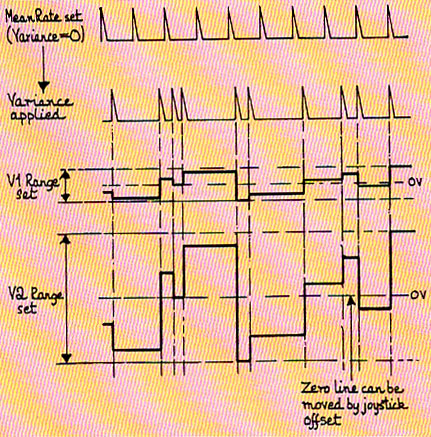 Mean Rate set
(Variance=0)
Variance
applied
V1 Range
set
0V
V2 Range
set
0V
Zero line can be
moved by joystick
offset